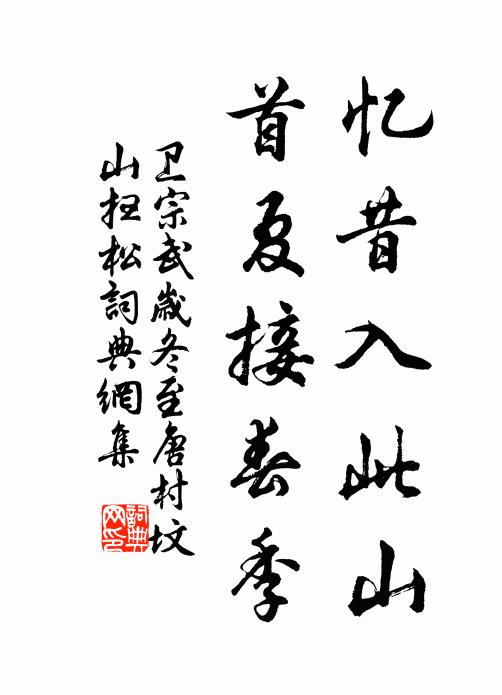 忆昔入此山
首夏接春季
卫宗武歲冬至唐村坟
山抂松詞典網集
詞典
网印